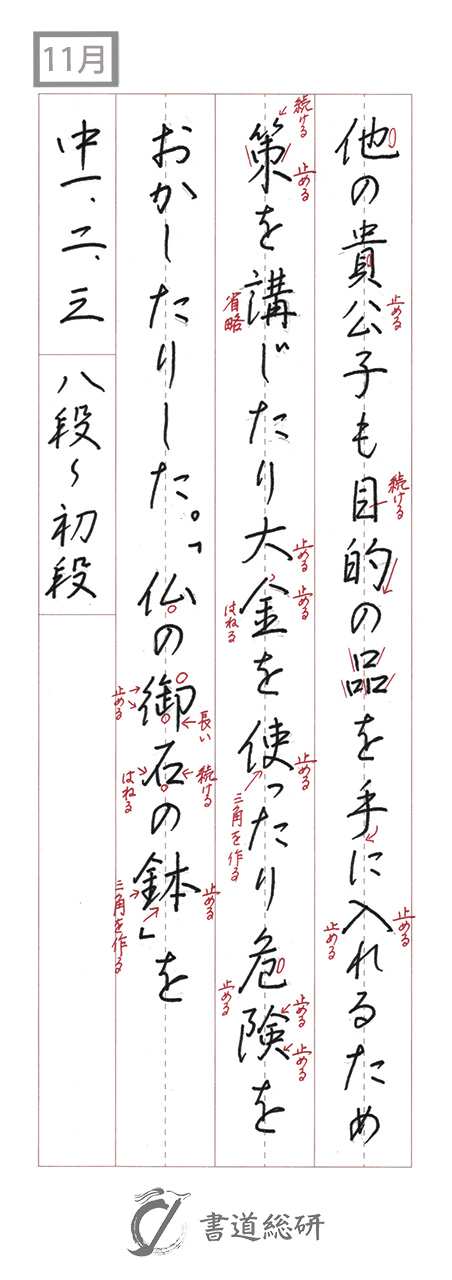 11月
他の貴公子も目的の品を手に入れるため
止める
続ける
止める
止める
策を講じたり大金を使ったり危険を
続ける
止める
省略
止める
止める
はねる
止める
三角を作る
止める
止める
止める
おかしたりした。「仏の御石の鉢」を
止める
長い
はねる
続ける
三角を作る
止める
中一、二、三
八段〜初段
書道総研